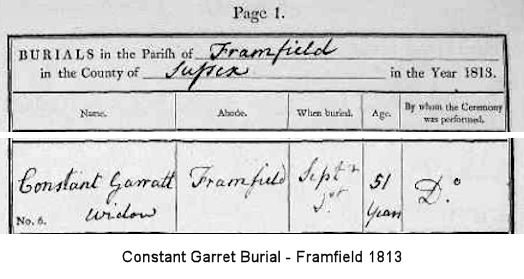 Page 1.
BURIALS in the Parish of Framfield
in the County of Sussex in the Year 1813.
Name. Abode. When buried. Age. By whom the Ceremony was performed.
Constant Garratt Framfield Septr 51 Do
Widow 1st Years
No. 6.
Constant Garret Burial - Framfield 1813